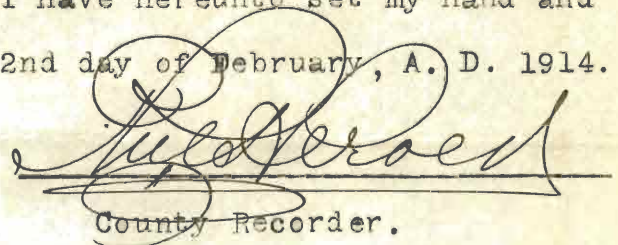 I have hereunto set my hand and
2nd day of February, A. D. 1914.
County Recorder.